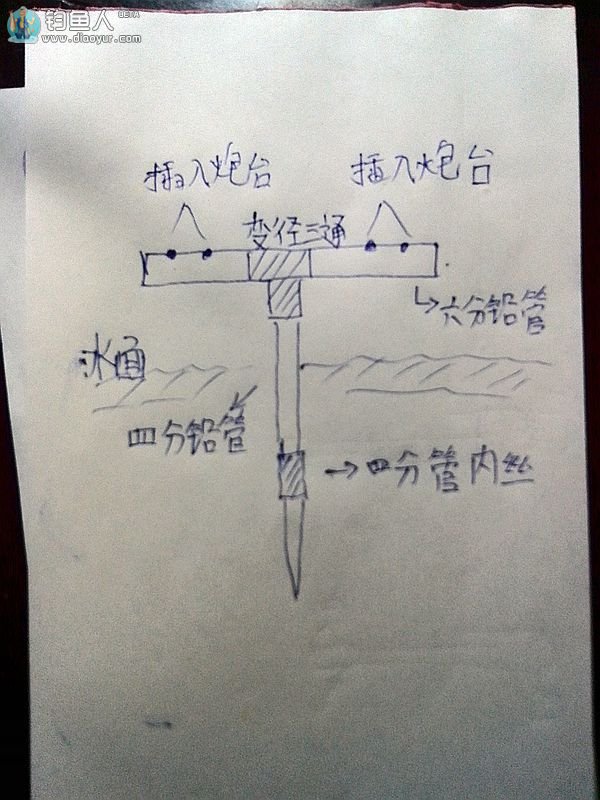 钓鱼人 BETA
www.diaoyur.com
插入炮台
插入炮台
变径三通
六分铅管
冰面
四分铅管
四分管内丝